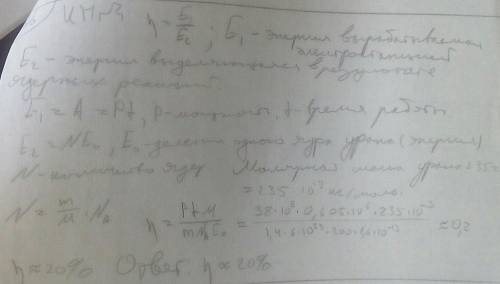 η = E₁/E₂ ; E₁ - энергия вырабатываемая
электростанцией
E₂ - энергия выделяющаяся в результате
ядерных реакций.
E₁ = A = Pt, P - мощность, t - время работы
E₂ = NE₀, E₀ - деления одного ядра урана (энергия)
N - количество ядер Молярная масса урана 235 =
= 235 · 10⁻³ кг/моль.
N = m/M · Nₐ η = PtM/mNₐE₀ = 38·10⁶·0,605·10⁶·235·10⁻³/1,4·6·10²³·200·1,6·10⁻¹³ ≈ 0,2
η ≈ 20% Ответ: η ≈ 20%